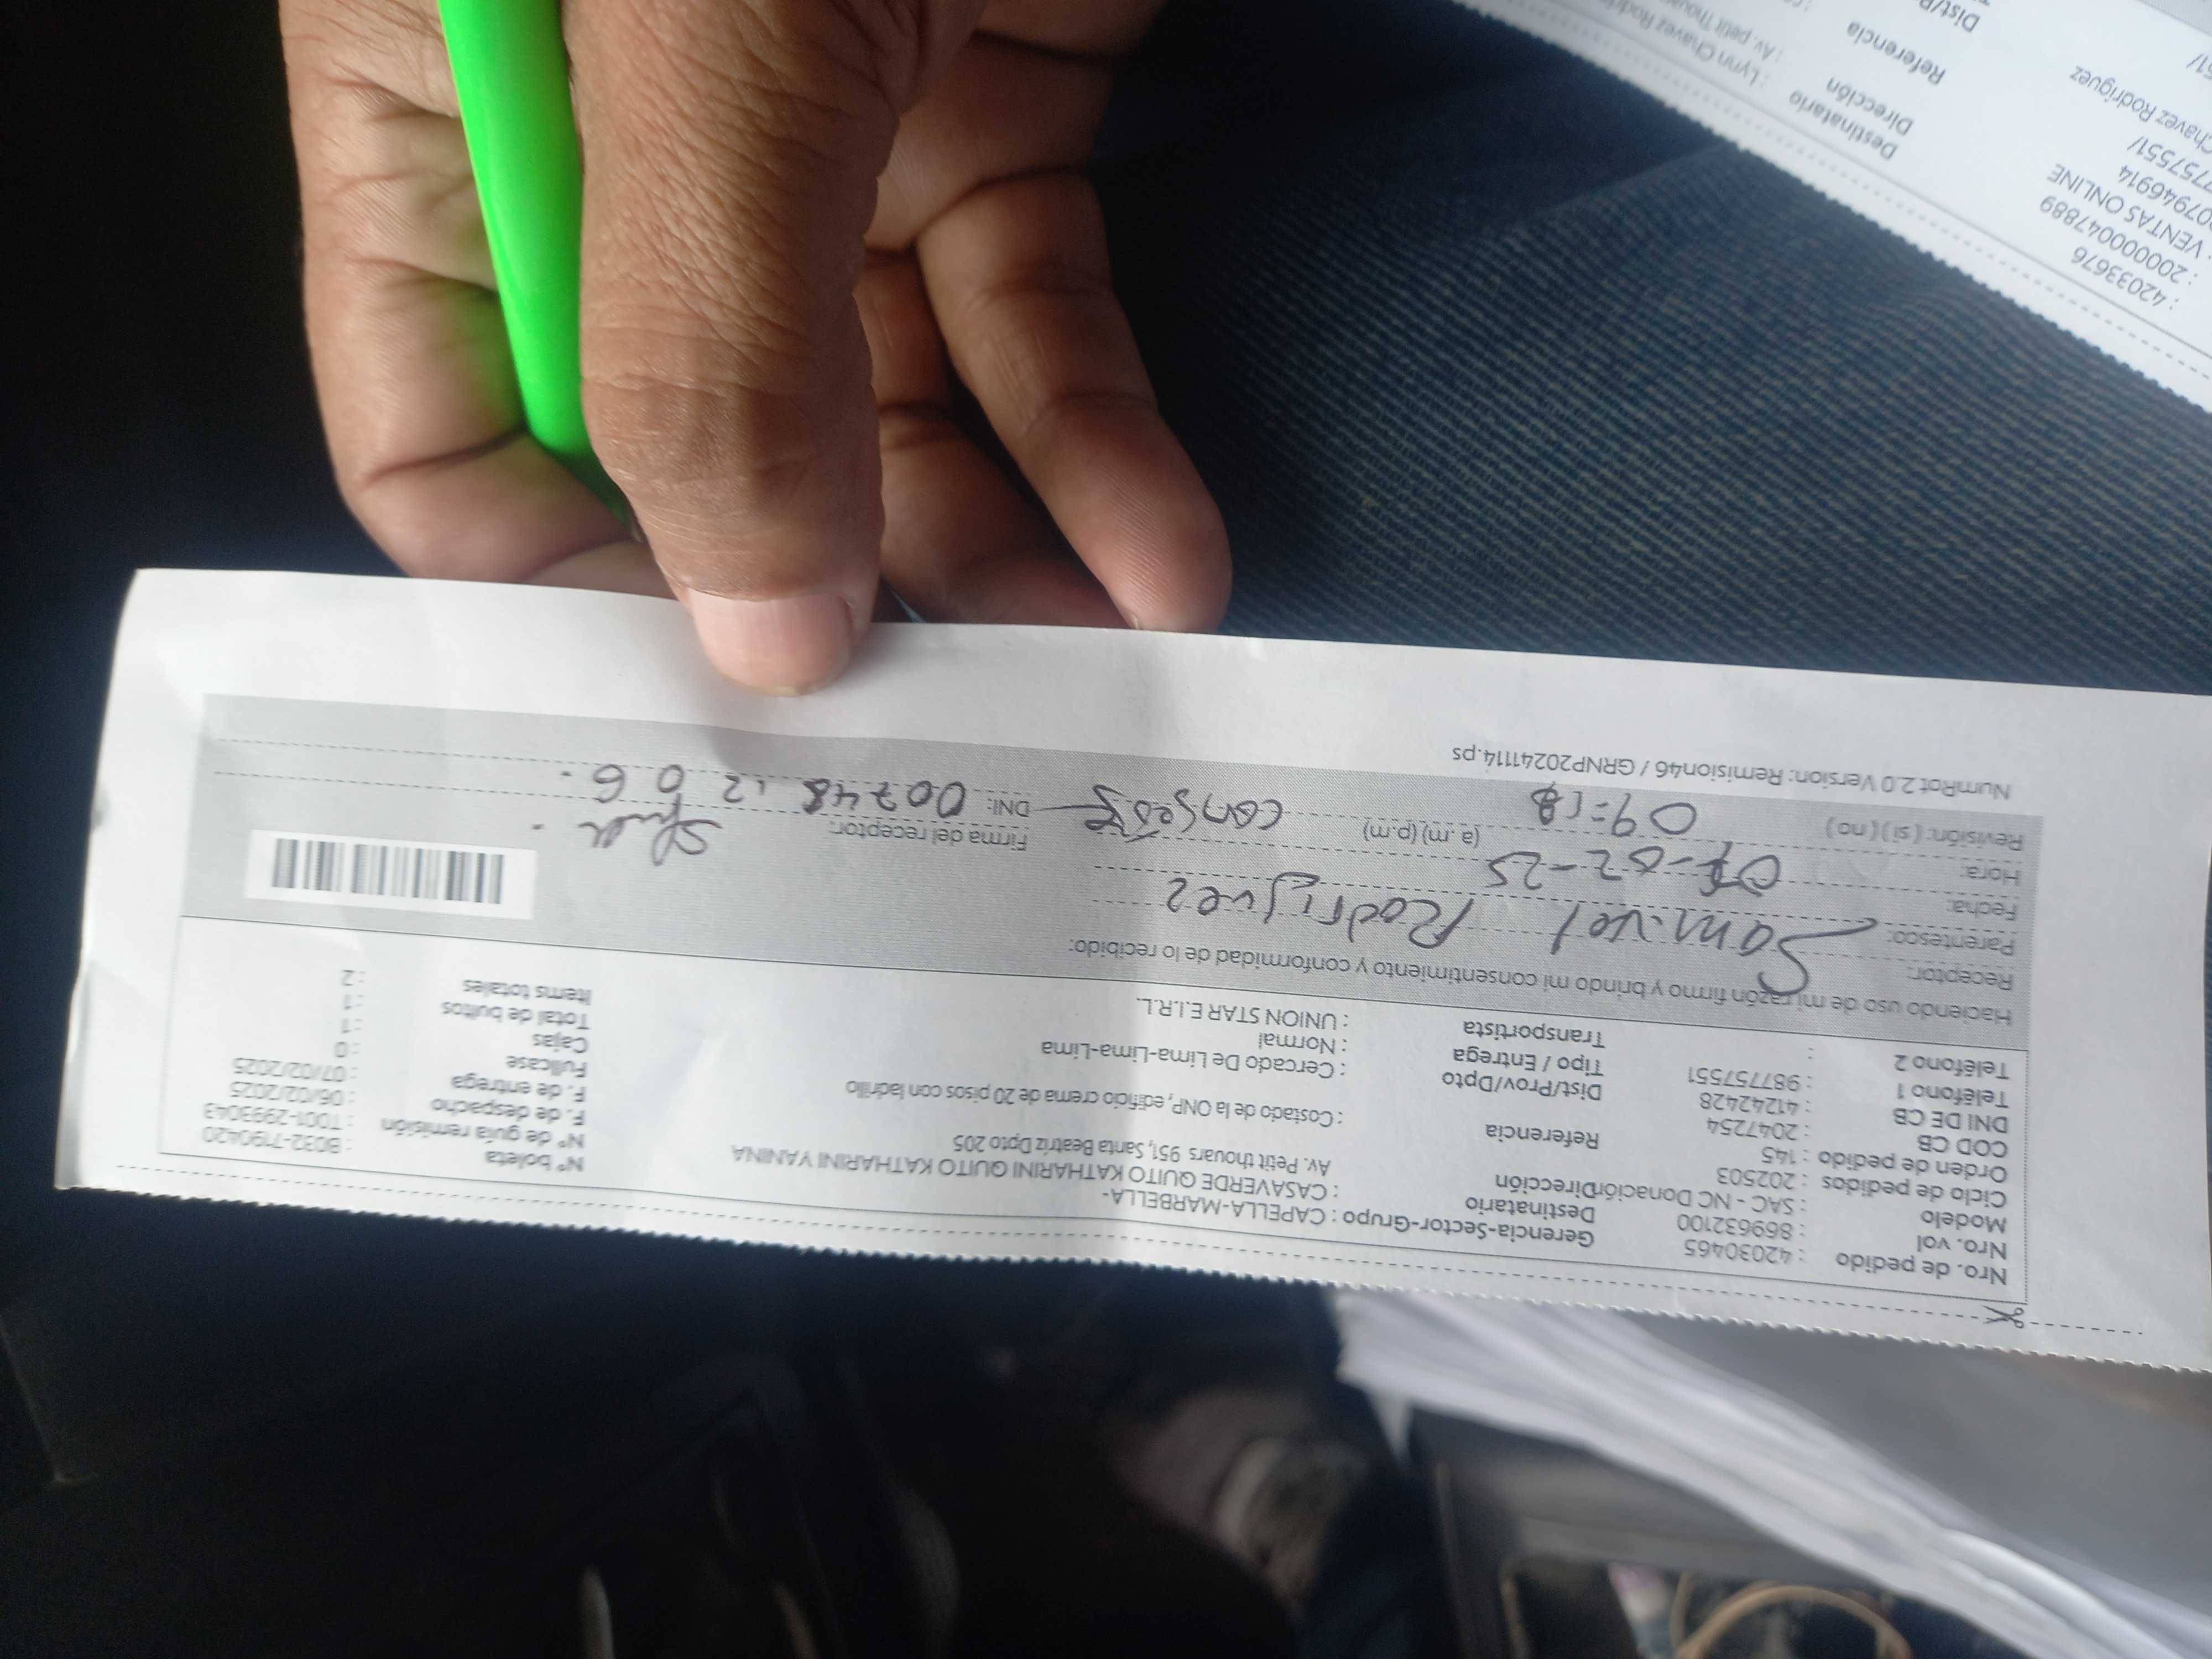 Nro. de pedido : 42030465
Nro. vol : 869632100
Modelo : SAC - NC Donación
Ciclo de pedidos : 202503
Orden de pedido : 145
COD CB : 2047254
DNI DE CB : 41242428
Teléfono 1 : 987757551
Teléfono 2 :
Gerencia-Sector-Grupo : CAPELLA-MARBELLA-
Destinatario : CASAVERDE QUITO KATHARINI QUITO KATHARINI YANINA
Dirección Av. Petit thouars 951, Santa Beatriz Dpto 205
Referencia : Costado de la ONP, edificio crema de 20 pisos con ladrillo
Dist/Prov/Dpto : Cercado De Lima-Lima-Lima
Tipo / Entrega : Normal
Transportista : UNION STAR E.I.R.L.
N° boleta : B032-7190420
N° de guía remisión : T001-2993043
F. de despacho : 06/02/2025
F. de entrega : 07/02/2025
Fullcase : 0
Cajas : 1
Total de bultos : 1
Items totales : 2
Haciendo uso de mi razón firmo y brindo mi consentimiento y conformidad de lo recibido:
Receptor: Samuel Rodriguez
Parentesco:
Fecha: 07-02-25
Hora: 09=18 (a.m) (p.m)
Revisión: ( si ) ( no )
Firma del receptor:
DNI: 00748206
NumRot 2.0 Version: Remision46 / GRNP20241114.ps
: 42033676
: 20000047889
: VENTAS ONLINE
07946914
77557551/
Chavez Rodríguez
51/
Destinatario : Lynn Chavez Rodrí
Dirección : Av. petit Thoua
Referencia
Dist/P